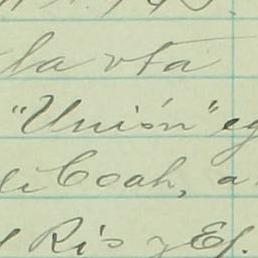 la vta
"Unión" eg
de Coah, a
Ris y Ef.